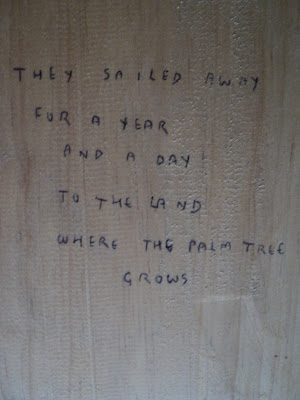 THEY SAILED AWAY
FOR A YEAR
AND A DAY
TO THE LAND
WHERE THE PALM TREE
GROWS